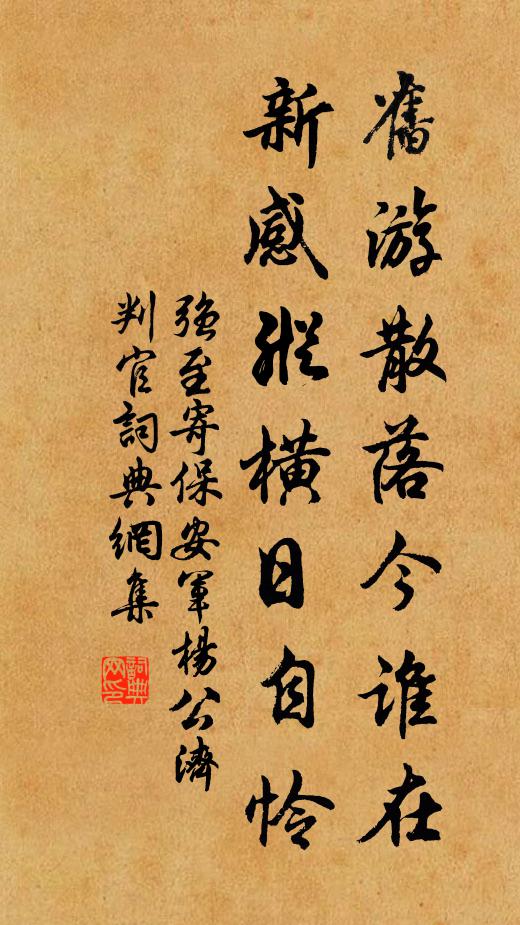 舊游散落今誰在
新感縱橫日自怜
強至寄保安軍楊公濟
判官詞典網集
詞典
网印